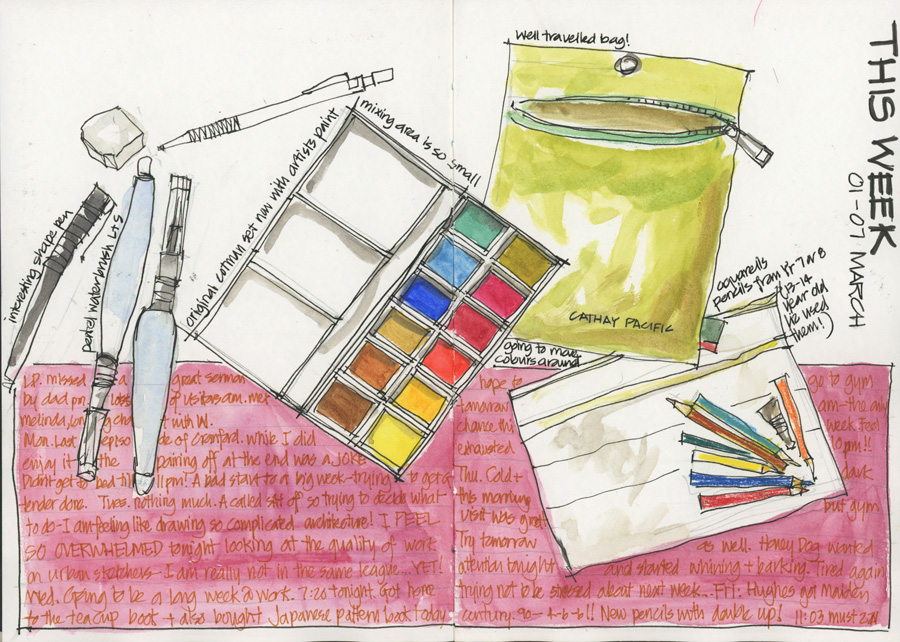 THIS WEEK
01-07 MARCH
Well travelled bag!
mixing area is so small
original cotman set now with artists paint
interesting shape pen
pentel waterbrush L+S
CATHAY PACIFIC
aquarells
pencils from Yr 7 or 8
13-14
year old
I've used
them!)
going to move
colours around
I.P. missed a great sermon
by dad pm.
melinda, with W.
Mon. Last episode of Cranford. While I did
enjoy it the pairing off at the end was a JOKE
Didn't get to bed till 11pm! A bad start to a big week-trying to get a
tender done. Tues. nothing much. A called sit of so trying to decide what
to do-I am feeling like drawing so complicated architecture! I FEEL
SO OVERWHELMED tonight looking at the quality of work
on urban sketchers-I am really not in the same league... YET!
Wed. Going to be a long week @ work. 7:20 tonight. Got home
to the tea cup book + also bought Japanese pattern book today
hope to go to gym
tomorrow am-the only
chance this week. Feel
exhausted 10pm!!
Thu. Cold + dark
this morning but gym
visit was great.
Try tomorrow as well. Honey Dog wanted
attention tonight and started whining + barking. Tired again
trying not to be stressed about next week... Fri: Hughes got maiden
century. 90-4-6-6!! New pencils with double up! 11:03 must zzz